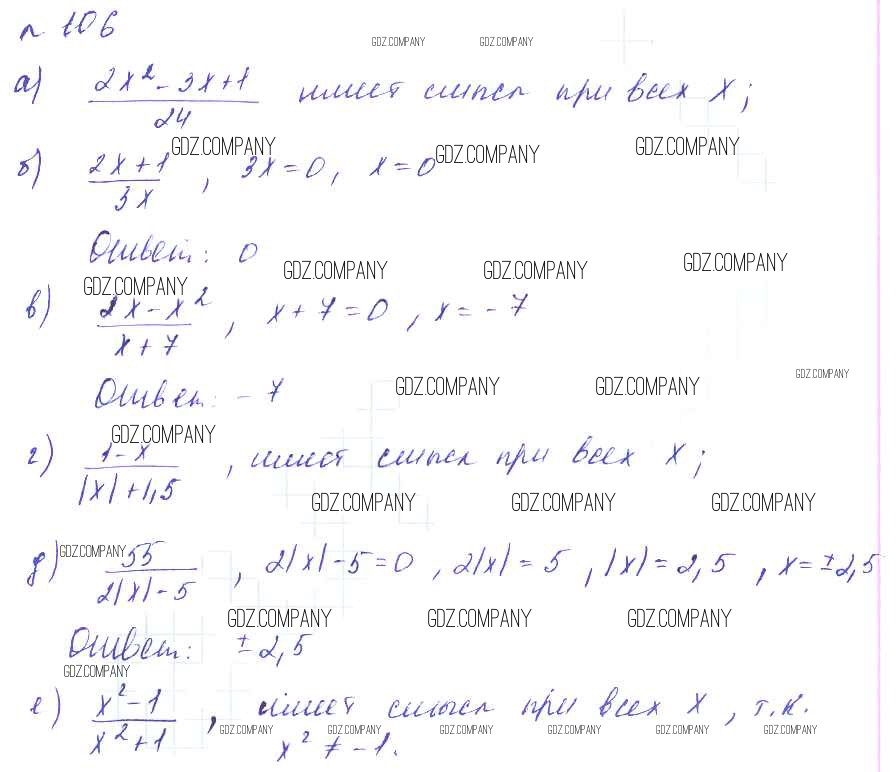 п. 106
GDZ.COMPANY GDZ.COMPANY
а) (2x² - 3x + 1)/24 имеет смысл при всех x;
GDZ.COMPANY GDZ.COMPANY GDZ.COMPANY
б) (2x + 1)/3x, 3x = 0, x = 0
Ответ: 0
GDZ.COMPANY GDZ.COMPANY GDZ.COMPANY GDZ.COMPANY
в) (2x - x²)/(x + 7), x + 7 = 0, x = -7
GDZ.COMPANY
Ответ: -7 GDZ.COMPANY GDZ.COMPANY
GDZ.COMPANY
г) (1 - x)/(|x| + 1,5), имеет смысл при всех x;
GDZ.COMPANY GDZ.COMPANY GDZ.COMPANY
GDZ.COMPANY
д) 55/(2|x| - 5), 2|x| - 5 = 0, 2|x| = 5, |x| = 2,5, x = ±2,5
GDZ.COMPANY GDZ.COMPANY GDZ.COMPANY
Ответ: ±2,5
GDZ.COMPANY
е) (x² - 1)/(x² + 1), имеет смысл при всех x, т.к.
GDZ.COMPANY GDZ.COMPANY GDZ.COMPANY GDZ.COMPANY GDZ.COMPANY GDZ.COMPANY
x² ≠ -1.